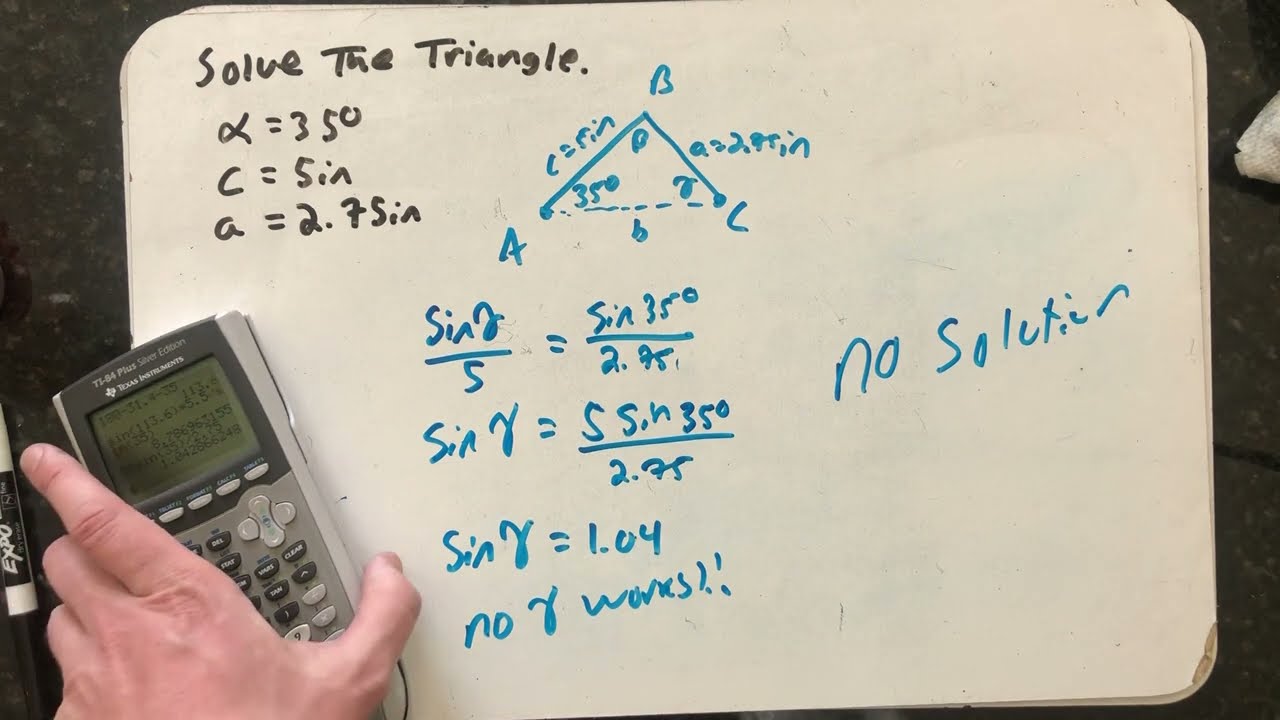 Solve The Triangle.
α = 35°
c = 5in
a = 2.75in
B
c=5in
β
a=2.75in
35°
γ
A
b
C
sinγ/5 = sin35°/2.75
sinγ = 5 sin 35°/2.75
sinγ = 1.04
no γ works!!
no solution
TI-84 Plus Silver Edition
TEXAS INSTRUMENTS
DEL
STAT
VARS
CLEAR
TAN
EXPO